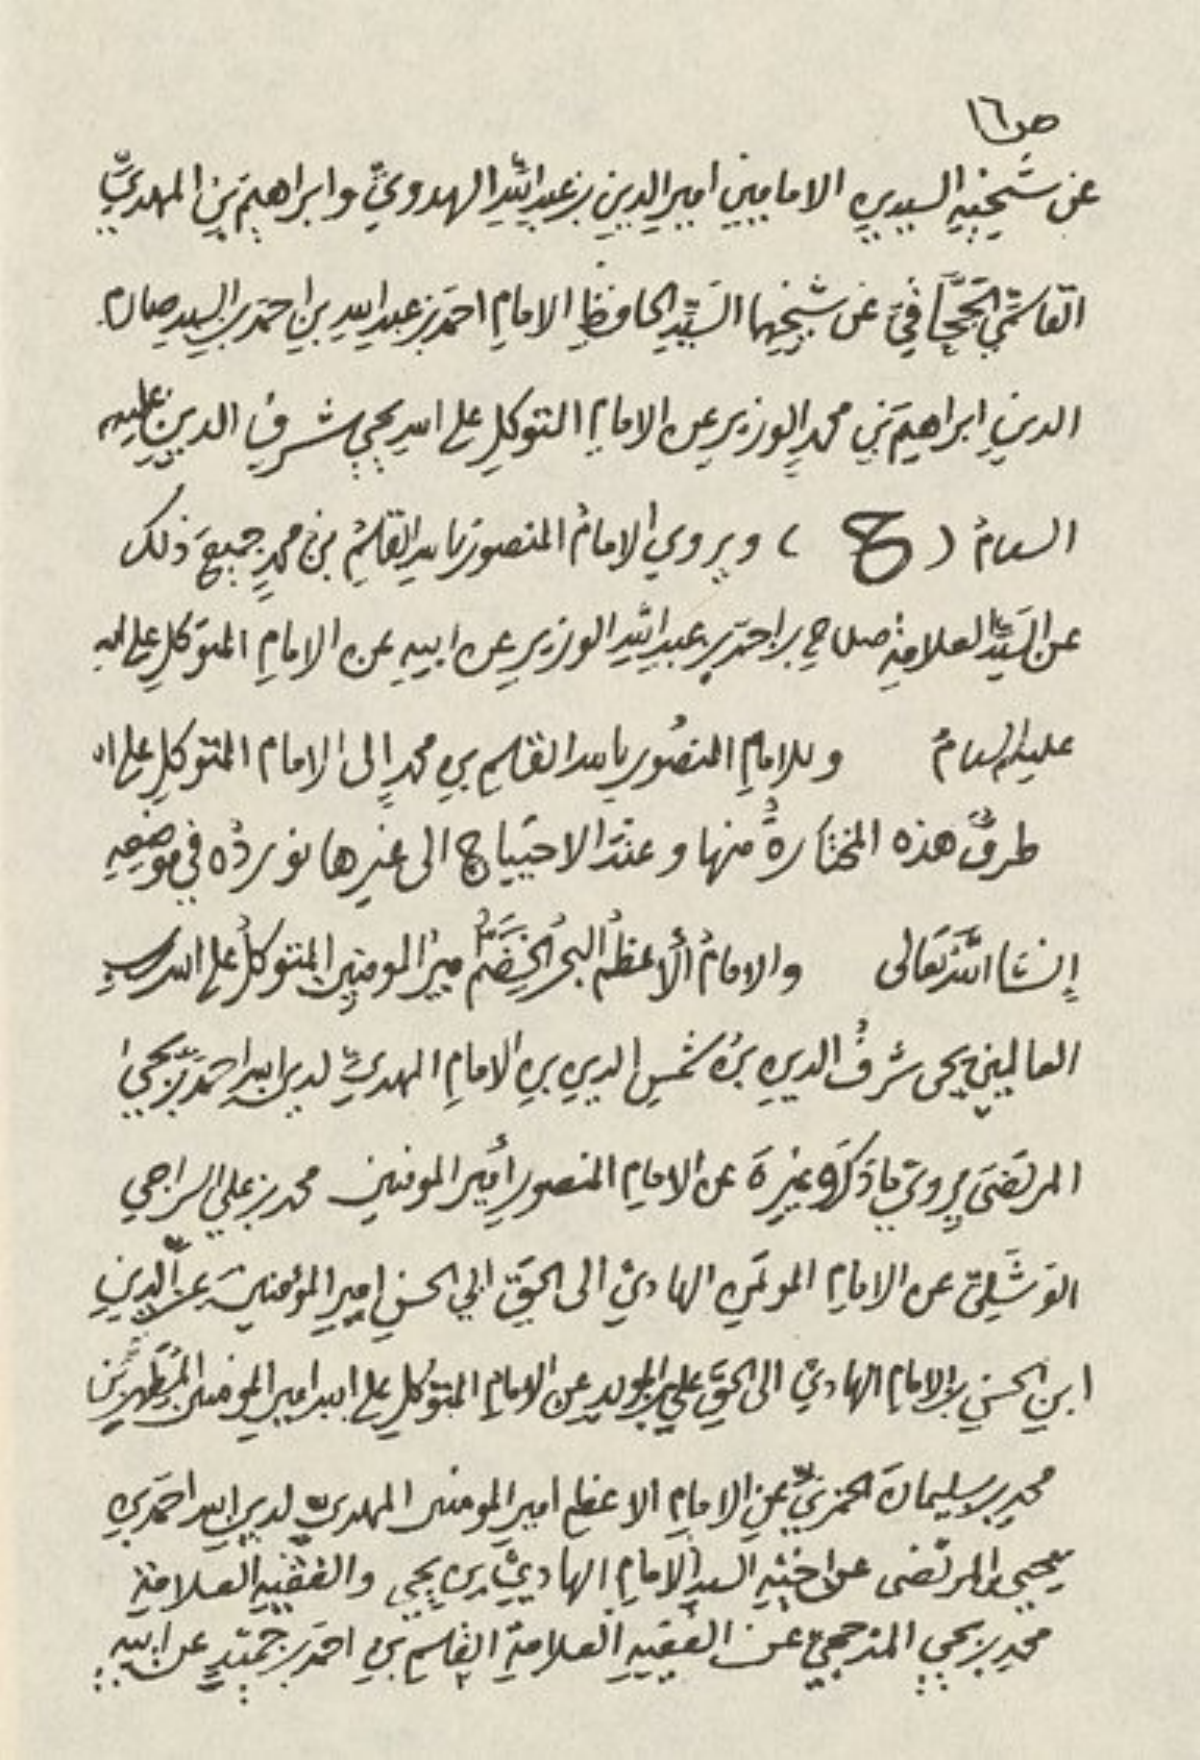 ص١٦
عن شيخيه السيدين الامامين امير الدين بن عبدالله الهدوي وابراهيم بن المهدي
القاسمي الجحافي عن شيخهما السيد الحافظ الامام احمد بن عبدالله بن احمد بن السيد صارم
الدين ابراهيم بن محمد الوزير عن الامام المتوكل على الله يحيى شرف الدين عليه
السلام ( ح ) ويروي الامام المنصور بالله القاسم بن محمد جميع ذلك
عن السيد العلامة صلاح بن احمد بن عبدالله الوزير عن ابيه عن الامام المتوكل على الله
عليه السلام وللامام المنصور بالله القاسم بن محمد الى الامام المتوكل على ا
طرق هذه المختارة منها وعند الاحتياج الى غيرها نورده في موضعه
إنشا الله تعالى والامام الأعظم البحر الخضم أمير المومنين المتوكل على الله رب
العالمين يحى شرف الدين بن شمس الدين بن الامام المهدي لدين الله احمد بن يحيى
المرتضى يروي ماذكر وغيره عن الامام المنصور أمير المومنين محمد بن علي السراجي
الوشلي عن الامام الموتمن الهادي الى الحق ابي الحسن امير المؤمنين عز الدين
ابن الحسن بن الامام الهادي الى الحق علي بن المويد عن الامام المتوكل على الله امير المومنين المطهر بن
محمد بن سليمان الحمزي عن الامام الاعظم امير المومنين المهدي لدين الله احمد بن
يحيى المرتضى عن اخيه السيد الامام الهادي بن يحيى والفقيه العلامة
محمد بن يحيى المذحجي عن الفقيه العلامة القاسم بن احمد بن حميد عن ابيه